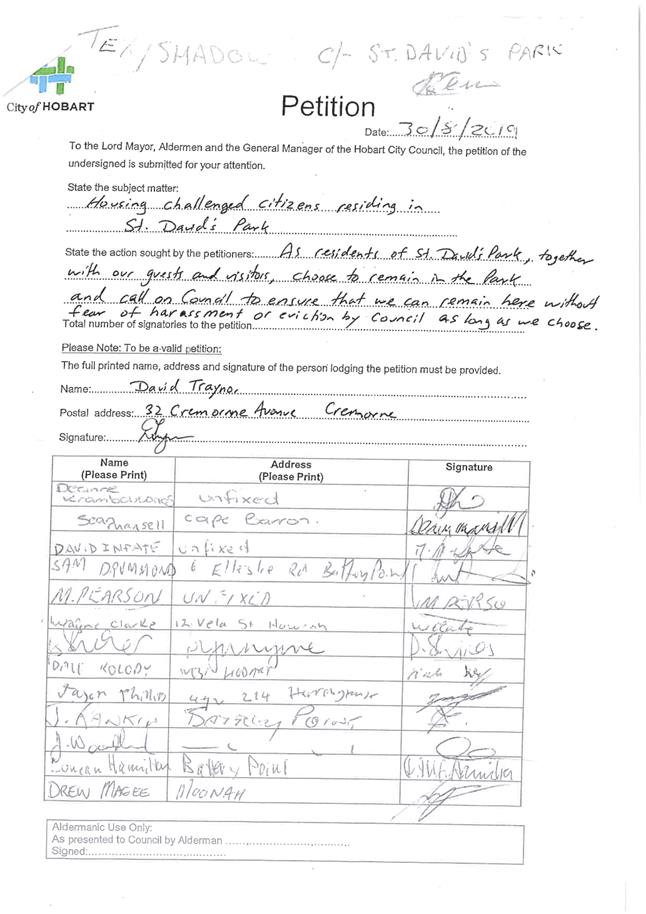 TEX/SHADOW C/- ST. DAVID'S PARK
City of HOBART
Petition
Date: 30/8/2019
To the Lord Mayor, Aldermen and the General Manager of the Hobart City Council, the petition of the
undersigned is submitted for your attention.
State the subject matter:
Housing challenged citizens residing in
St. David's Park
State the action sought by the petitioners: As residents of St. David's Park, together
with our guests and visitors, choose to remain in the Park
and call on Council to ensure that we can remain here without
fear of harassment or eviction by Council as long as we choose.
Total number of signatories to the petition
Please Note: To be a valid petition:
The full printed name, address and signature of the person lodging the petition must be provided.
Name: David Traynor
Postal address: 32 Cremorne Avenue Cremorne
Signature:
Name Address Signature
(Please Print) (Please Print)
unfixed
Sean Mansell Cape Barron.
DAVID unfixed
SAM DRUMMOND 6 Ellerslie Rd Battery Point
M. PEARSON UNFIXED M PERSO
Wayne Clarke 12 Vela St Howrah
DALE KOLODY
Jason Phillips 214
J. RANKIN BATTERY POINT
Duncan Hamilton Battery Point Hamilton
DREW MAGEE MOONAH
Aldermanic Use Only:
As presented to Council by Alderman
Signed: